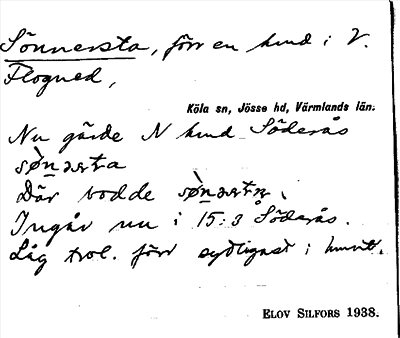 Sönnersta, förr en hmd i V.
Flogned,
Köla sn, Jösse hd, Värmlands län.
Nu gärde N hmd Söderås
Där bodde
Ingår nu i 15:3 Söderås.
Låg trol. förr sydligast i hmvt.
ELOV SILFORS 1938.